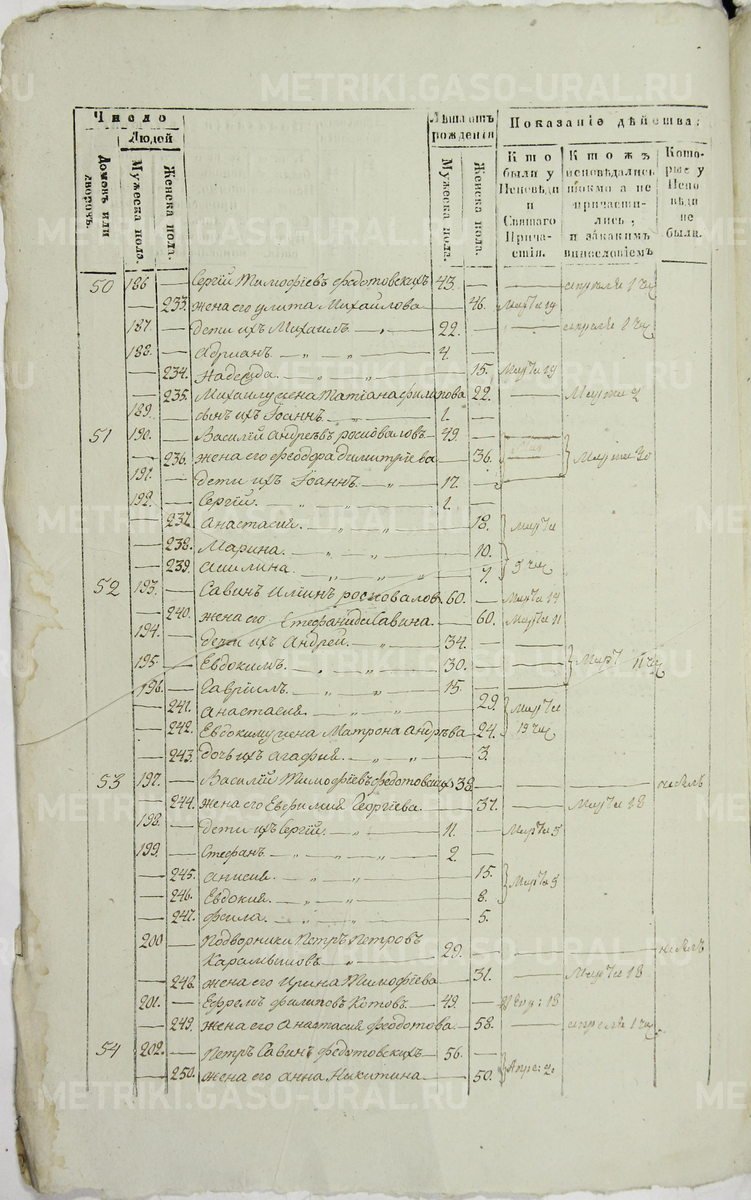 METRIKI.GASO-URAL.RU
Число
Людей
Домовъ или дворовъ.
Мужеска пола.
Женска пола.
Лѣта отъ рожденія
Мужеска пола.
Женска пола.
Показаніе дѣйства:
Кто были у Исповѣди и Святаго Причастія.
Кто жъ исповѣдались токмо а не причастились, и за какимъ винословіемъ
Которые у Исповѣди не были.
50 186 — Сергій Тимофѣевъ Федотовскихъ 43. — апреля 1 чи
— 233. жена его улита Михайлова — 46. Марта 19
187. — дети ихъ Михаилъ — „ — 22. —
188. — Адрианъ. — „ — „ — 4 —
— 234. Надежда. — „ — „ — 15. Марта 19
— 235. Михаилу жена Татіана филипова 22.
189. — сынъ ихъ Іоаннъ. — „ — 1. —
51 190. — Василій Андреѣвъ росповаловъ — 49. —
— 236. жена его Феодора Димитріева — 36.
191. — дети ихъ Іоаннъ. — „ — 17. —
192. — Сергій. — „ — „ — 1. —
— 237. Анастасия. „ „ 18. Марта
— 238. Марина. „ „ 10.
— 239. „ „ „ 7. 5 чи
52 193. — Савинъ Илiинъ росповаловъ 60. — Марта 14
— 240. жена его Стефанида Савина. — 60. Марта 11
194. — дети ихъ Андрей. — „ — 34. —
195. — Евдокимъ. „ „ 30. —
196. — Гавріилъ. — „ — „ — 15. —
— 241. Анастасия. „ „ 29. Марта
— 242. Евдокиму жена Матрона Андрѣва — 24. 19 чи
— 243. дочь ихъ агафия. — „ — „ — 3.
53 197. — Василій Тимофѣевъ Федотовскихъ 38. —
— 244. жена его Евфимия Георгіева. — 37. — Марта 18
198. — дети ихъ Сергій. — „ — 11. — Марта 5
199. — Стефанъ — „ — „ — „ — 2. —
— 245. анисия. „ „ 15.
— 246. Евдокия. „ „ 8. Марта 5
— 247. „ „ 5.
200 — Подворники Петръ Петровъ
Карамышовъ — „ — 29. —
— 248. жена его Ирина Тимофѣева — 31. — Марта 18
201. — Ефремъ филиповъ Котовъ. — 49. —
— 249. жена его Анастасия Феодотова — 58. — апреля 1 чи
54 202. — Петръ Савинъ Федотовскихъ — 56. —
— 250. жена его анна Никитина — 50.